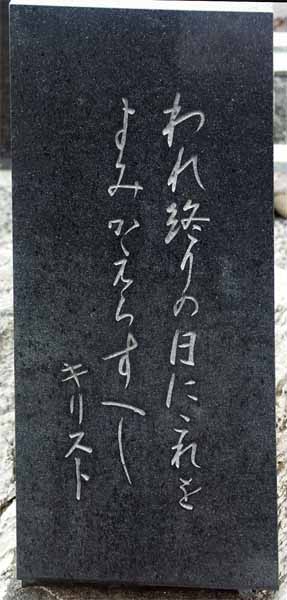 われ終りの日にこれを
よみがえらすべし
キリスト